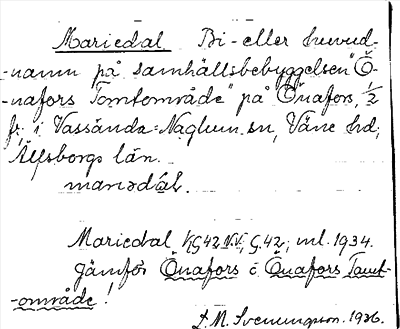 Mariedal Bi- eller huvud-
-namn på samhällsbebyggelsen "Ö-
-nafors Tomtområde" på Önafors, 1/2
fr. i Vassända-Naglum sn, Väne hd,
Älfsborgs län.
marədál.
Mariedal G42 NV, G.42; ml. 1934.
Jämför Önafors o. Önafors Tomt-
-område!
D. M. Svenungson. 1936.